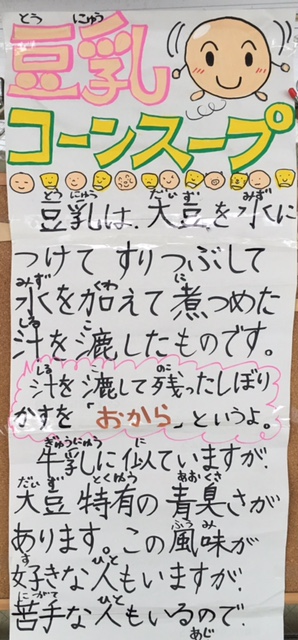 とう にゅう
豆乳
コーンスープ
とう にゅう だい ず みず
豆乳は、大豆を水に
つけて すりつぶして
みず くわ に
水を加えて煮つめた
しる こ
汁を漉したものです。
しる こ のこ
汁を漉して残ったしぼり
かすを「おから」というよ。
ぎゅうにゅう に
牛乳に似ていますが、
だい ず とくゆう あおくさ
大豆特有の青臭さが
ふう み
あります。この風味が
す ひと
好きな人もいますが、
にがて ひと
苦手な人もいるので、
あじ